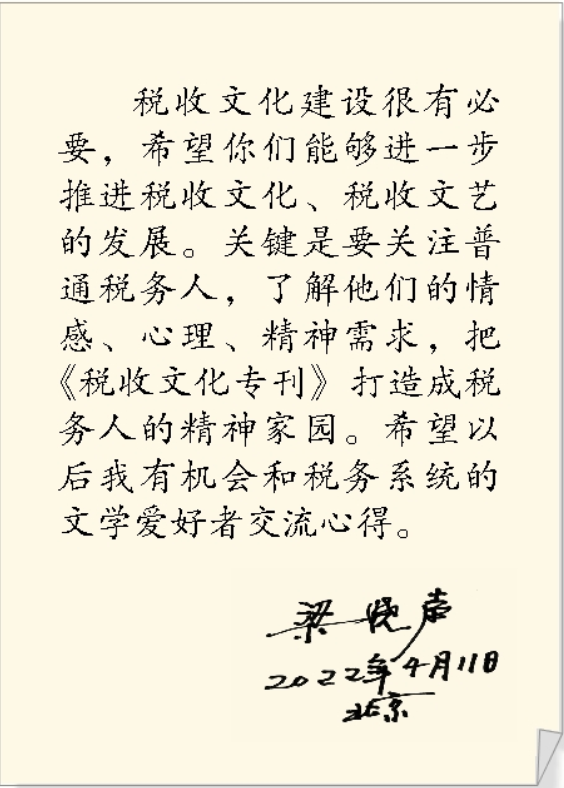 税收文化建设很有必
要，希望你们能够进一步
推进税收文化、税收文艺
的发展。关键是要关注普
通税务人，了解他们的情
感、心理、精神需求，把
《税收文化专刊》打造成税
务人的精神家园。希望以
后我有机会和税务系统的
文学爱好者交流心得。
梁晓声
2022年4月11日
北京